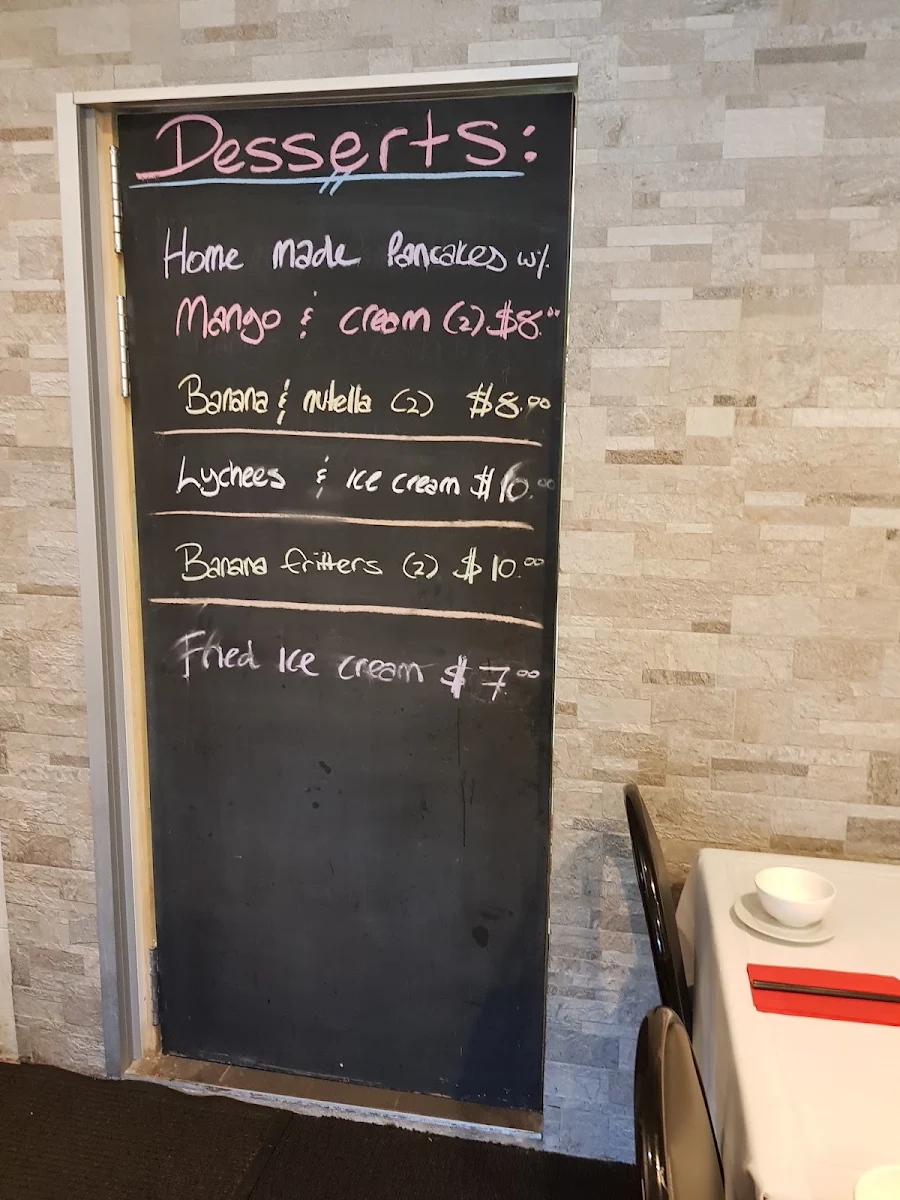 Desserts:
Home made Pancakes w/.
Mango & cream (2) $8.00
Banana & nutella (2) $8.00
Lychees & Ice cream $10.00
Banana fritters (2) $10.00
Fried Ice cream $7.00